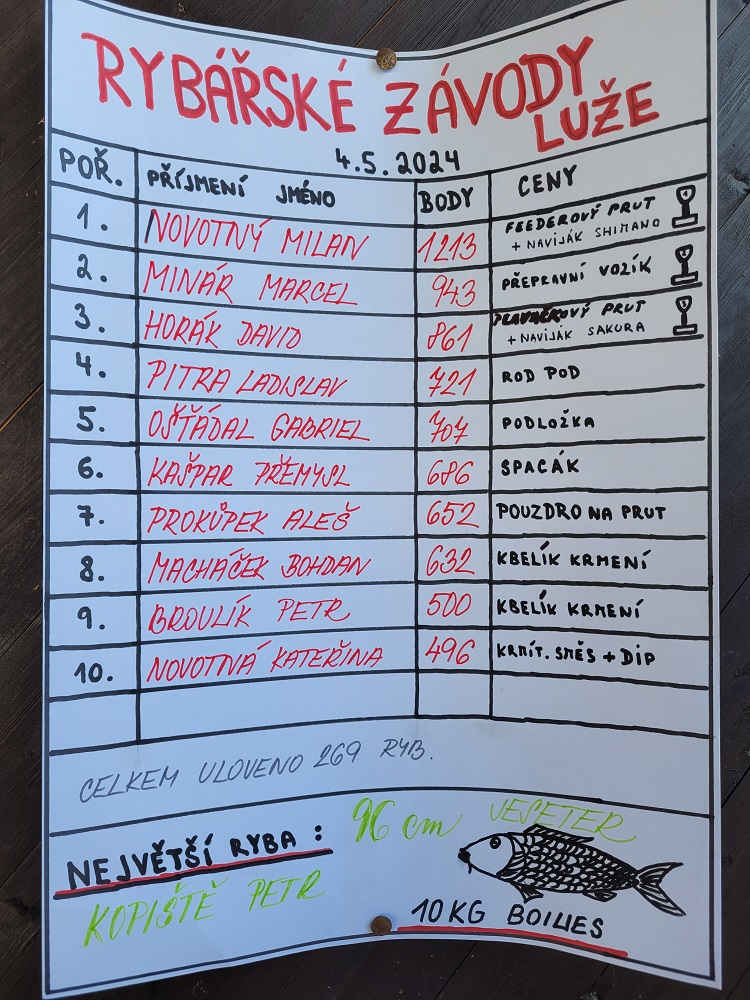 RYBÁŘSKÉ ZÁVODY
LUŽE
4.5.2024
POŘ. PŘÍJMENÍ JMÉNO BODY CENY
1. NOVOTNÝ MILAN 1213 FEEDEROVÝ PRUT
+ NAVIJÁK SHIMANO
2. MINÁR MARCEL 943 PŘEPRAVNÍ VOZÍK
3. HORÁK DAVID 861 PLAVAČKOVÝ PRUT
+ NAVIJÁK SAKURA
4. PITRA LADISLAV 721 ROD POD
5. OŠŤÁDAL GABRIEL 707 PODLOŽKA
6. KAŠPAR PŘEMYSL 686 SPACÁK
7. PROKŮPEK ALEŠ 652 POUZDRO NA PRUT
8. MACHÁČEK BOHDAN 632 KBELÍK KRMENÍ
9. BROULÍK PETR 500 KBELÍK KRMENÍ
10. NOVOTNÁ KATEŘINA 496 KRMÍT. SMĚS + DIP
CELKEM ULOVENO 269 RYB.
96 cm JESETER
NEJVĚTŠÍ RYBA:
KOPIŠTĚ PETR
10 KG BOILIES